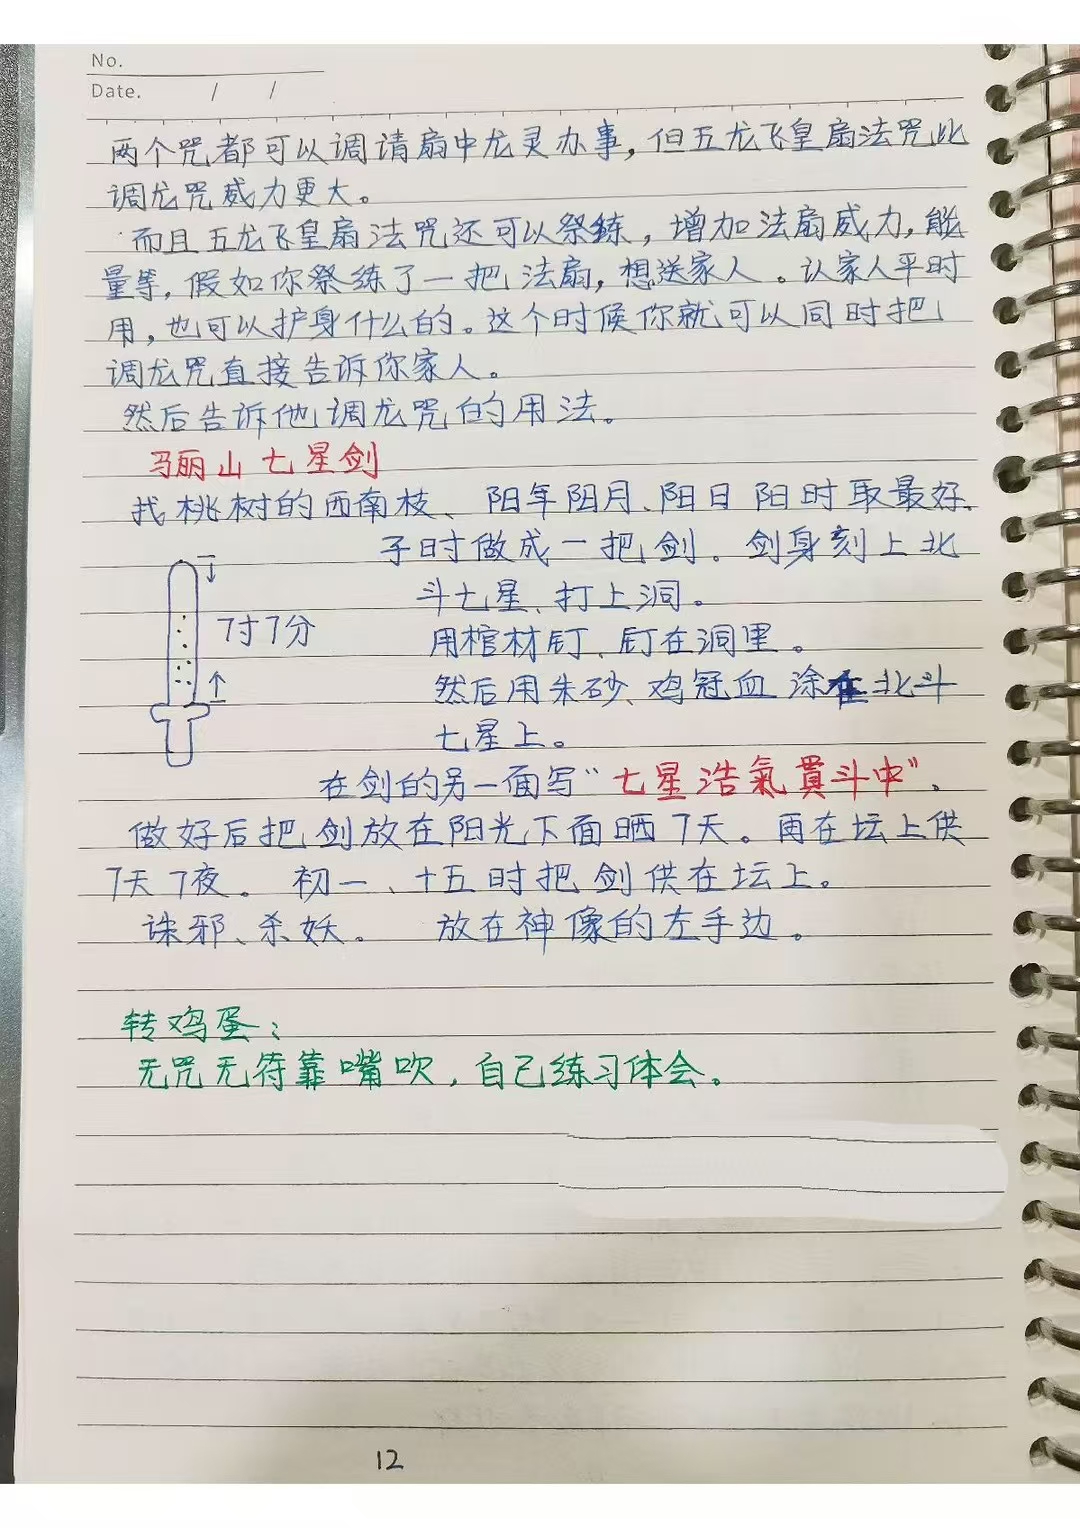 No.
Date. / /
两个咒都可以调请扇中龙灵办事，但五龙飞皇扇法咒比
调龙咒威力更大。
而且五龙飞皇扇法咒还可以祭练，增加法扇威力，能
量等，假如你祭练了一把法扇，想送家人。认家人平时
用，也可以护身什么的。这个时候你就可以同时把
调龙咒直接告诉你家人。
然后告诉他调龙咒的用法。
马丽山七星剑
找桃树的西南枝、阳年阳月、阳日阳时取最好、
子时做成一把剑。剑身刻上北
斗七星、打上洞。
7寸7分
用棺材钉、钉在洞里。
然后用朱砂、鸡冠血涂在北斗
七星上。
在剑的另一面写“七星浩氣貫斗中”、
做好后把剑放在阳光下面晒7天。再在坛上供
7天7夜。初一、十五时把剑供在坛上。
诛邪、杀妖。 放在神像的左手边。
转鸡蛋：
无咒无符靠嘴吹，自己练习体会。
12